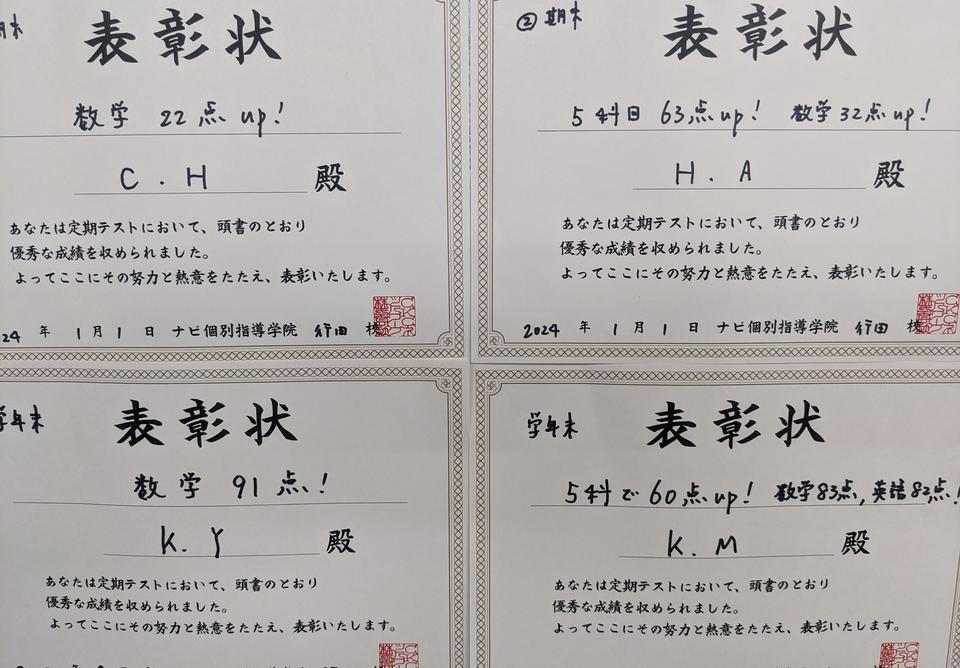 期末
表彰状
数学 22点up!
C.H 殿
あなたは定期テストにおいて、頭書のとおり
優秀な成績を収められました。
よってここにその努力と熱意をたたえ、表彰いたします。
24年 1月1日 ナビ個別指導学院 行田 校
② 期末
表彰状
5科目 63点up! 数学32点up!
H.A 殿
あなたは定期テストにおいて、頭書のとおり
優秀な成績を収められました。
よってここにその努力と熱意をたたえ、表彰いたします。
2024年 1月1日 ナビ個別指導学院 行田 校
学年末
表彰状
数学 91点!
K.Y 殿
あなたは定期テストにおいて、頭書のとおり
優秀な成績を収められました。
よってここにその努力と熱意をたたえ、表彰いたします。
学年末
表彰状
5科で60点up! 数学83点,英語82点!
K.M 殿
あなたは定期テストにおいて、頭書のとおり
優秀な成績を収められました。
よってここにその努力と熱意をたたえ、表彰いたします。